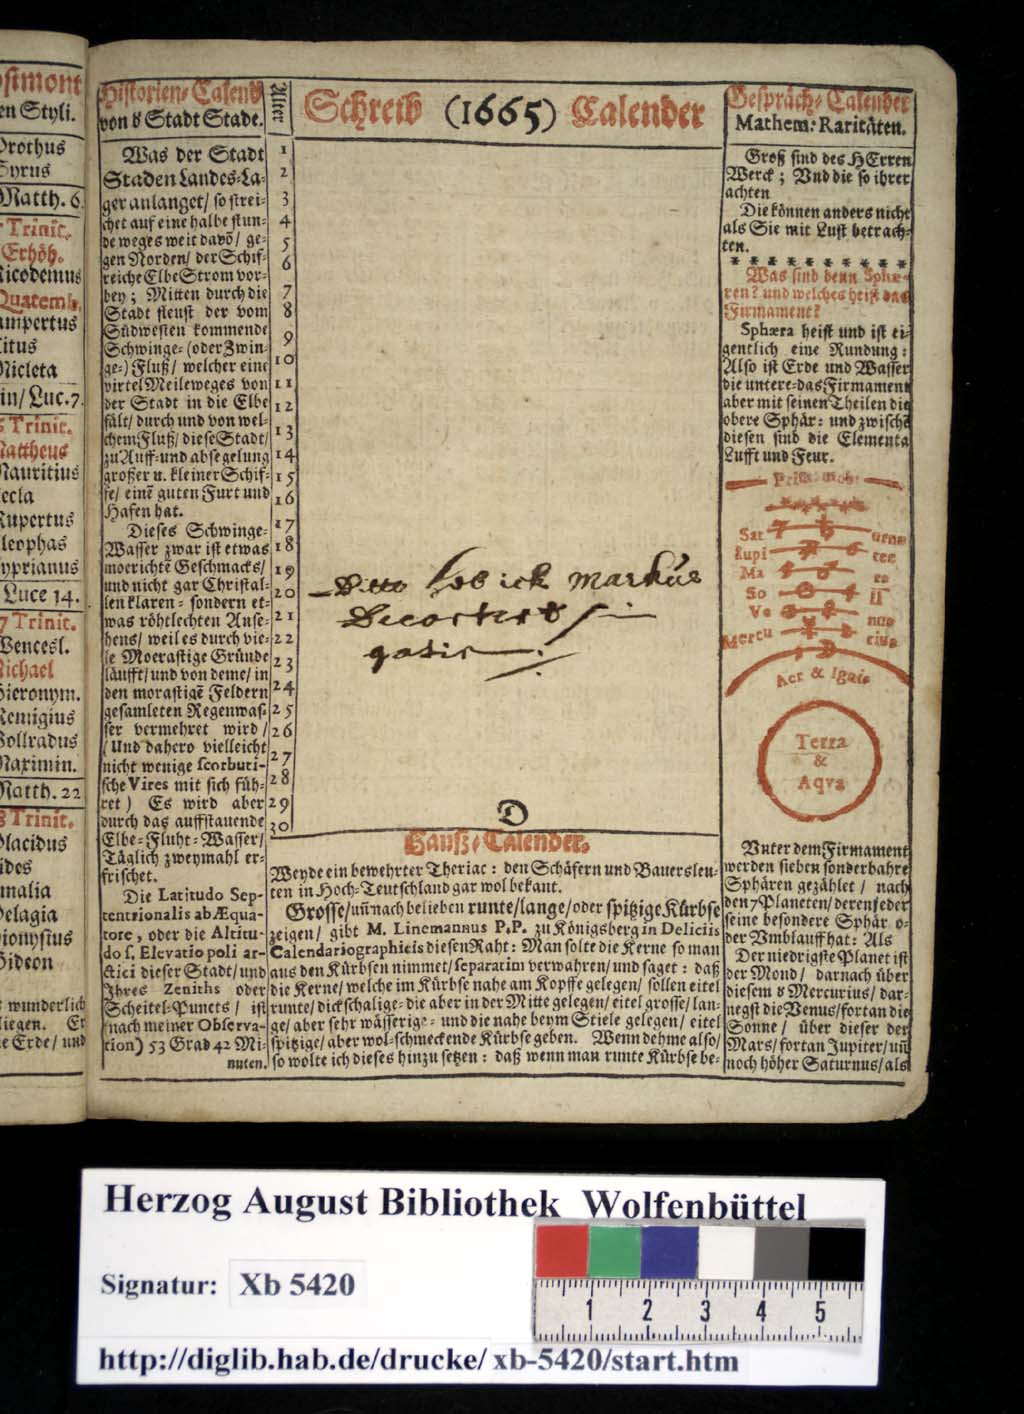 stmont
en Styli.
Prothus
Syrus
Matth. 6.
Trinit.
Erhöh.
Nicodemus
Quatemb.
Lampertus
Titus
Micleta
in/ Luc. 7.
Trinit.
Mattheus
Mauritius
Tecla
Rupertus
Cleophas
Cyprianus
Luce 14.
7 Trinit.
Wencesl.
Michael
Hieronym.
Remigius
Vollradus
Maximin.
Matth. 22
8 Trinit.
Placidus
ides
malia
Pelagia
Dionysius
Gideon
wunderlich
liegen. Er
e Erde/ und
Historien-Calend
von d Stadt Stade.
Was der Stadt
Staden Landes-La-
ger anlanget/ so strei-
chet auf eine halbe stun-
de weges weit davõ/ ge-
gen Norden/ der Schif-
reiche Elbe Strom vor-
bey; Mitten durch die
Stadt fleust der vom
Südwesten kommende
Schwinge- (oder Zwin-
ge-) Fluß/ welcher eine
virtel Meileweges von
der Stadt in die Elbe
fält/ durch und von wel-
chem Fluß/ diese Stadt/
zu Auff- und absegelung
großer u. kleiner Schif-
fe/ einẽ guten Furt und
Hafen hat.
Dieses Schwinge-
Wasser zwar ist etwas
moerichtẽ Geschmacks/
und nicht gar Christal-
len klaren- sondern et-
was röhtlechten Anse-
hens/ weil es durch vie-
le Moerastige Gründe
läufft/ und von deme/ in
den morastigẽ Feldern
gesamleten Regenwas-
ser vermehret wird/
(Und dahero vielleicht
nicht wenige scorbuti-
sche Vires mit sich füh-
ret) Es wird aber
durch das auffstauende
Elbe-Fluht-Wasser/
Täglich zweymahl er-
frischet.
Die Latitudo Sep-
tentrionalis ab Æqua-
tore, oder die Altitu-
do s. Elevatio poli ar-
ctici dieser Stadt/ und
Ihres Zeniths oder
Scheitel-Punets/ ist
(nach meiner Observa-
tion) 53 Grad 42 Mi-
nuten.
Alter
1
2
3
4
5
6
7
8
9
10
11
12
13
14
15
16
17
18
19
20
21
22
23
24
25
26
27
28
29
30
Schreib (1665) Calender
Ditto hob ick Markus
D
Hauß-Calender.
Weyde ein bewehrter Theriac: den Schäfern und Bauersleu-
ten in Hoch-Teutschland gar wol bekant.
Grosse/ uñ nach belieben runte/ lange/ oder spitzige Kürbse
zeigen/ gibt M. Linemannus P.P. zu Königsberg in Deliciis
Calendariographicis diesen Raht: Man solte die Kerne so man
aus den Kürbsen nimmet/ separatim verwahren/ und saget: daß
die Kerne/ welche im Kürbse nahe am Kopffe gelegen/ sollen eitel
runte/ dickschalige- die aber in der Mitte gelegen/ eitel grosse/ lan-
ge/ aber sehr wässerige- und die nahe beym Stiele gelegen/ eitel
spitzige/ aber wol-schmeckende Kürbse geben. Wenn dehme also/
so wolte ich dieses hinzu setzen: daß wenn man runte Kürbse be-
Gespräch-Calender
Mathem: Raritäten.
Groß sind des HErren
Werck; Und die so ihrer
achten
Die können anders nicht
als Sie mit Lust betrach-
ten.
* * * * * * * * * *
Was sind denn Sphæ-
ren? und welches heist das
Firmament?
Sphæra heist und ist ei-
gentlich eine Rundung:
Also ist Erde und Wasser
die untere- das Firmament
aber mit seinen Theilen die
obere Sphär: und zwischẽ
diesen sind die Elementa
Lufft und Feur.
Prim: mob:
Sat ♄ urnus
Iupi ♃ ter
Ma ♂ rs
So ☉ ll
Ve ♀ nus
Mercu ☿ rius
☽
Aer & Ignis
Terra
&
Aqva
Unter dem Firmament
werden sieben sonderbahre
Sphären gezählet/ nach
den 7 Planeten/ deren jeder
seine besondere Sphär o-
der Umblauff hat: Als
Der niedrigste Planet ist
der Mond/ darnach über
diesem d Mercurius/ dar-
negst die Venus/ fortan die
Sonne/ über dieser der
Mars/ fortan Jupiter/ uñ
noch höher Saturnus/ als
Herzog August Bibliothek Wolfenbüttel
Signatur: Xb 5420
1 2 3 4 5
http://diglib.hab.de/drucke/xb-5420/start.htm